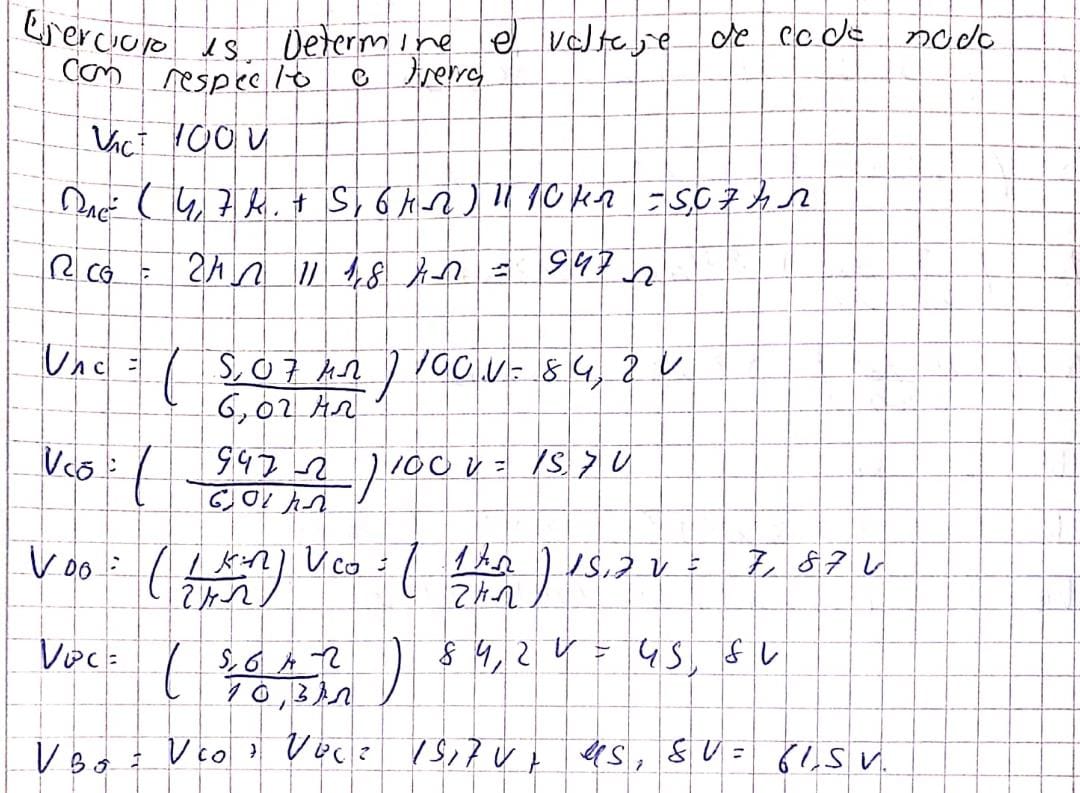 Ejercicio 15. Determine el voltaje de cada nodo
con respecto a tierra
VAC = 100 V
ΩAC = ( 4,7 k. + 5,6 kΩ ) || 10 kΩ = 5,07 kΩ
ΩCG = 2kΩ || 1,8 kΩ = 947 Ω
VAC = ( 5,07 kΩ / 6,02 kΩ ) 100 V = 84,2 V
VCG = ( 947 Ω / 6,02 kΩ ) 100 V = 15,7 V
VDG = ( 1 kΩ / 2kΩ ) VCG = ( 1kΩ / 2kΩ ) 15,7 V = 7,87 V
VBC = ( 5,6 kΩ / 10,3kΩ ) 84,2 V = 45,8V
VBG = VCG + VBC = 15,7 V + 45,8V = 61,5 V.